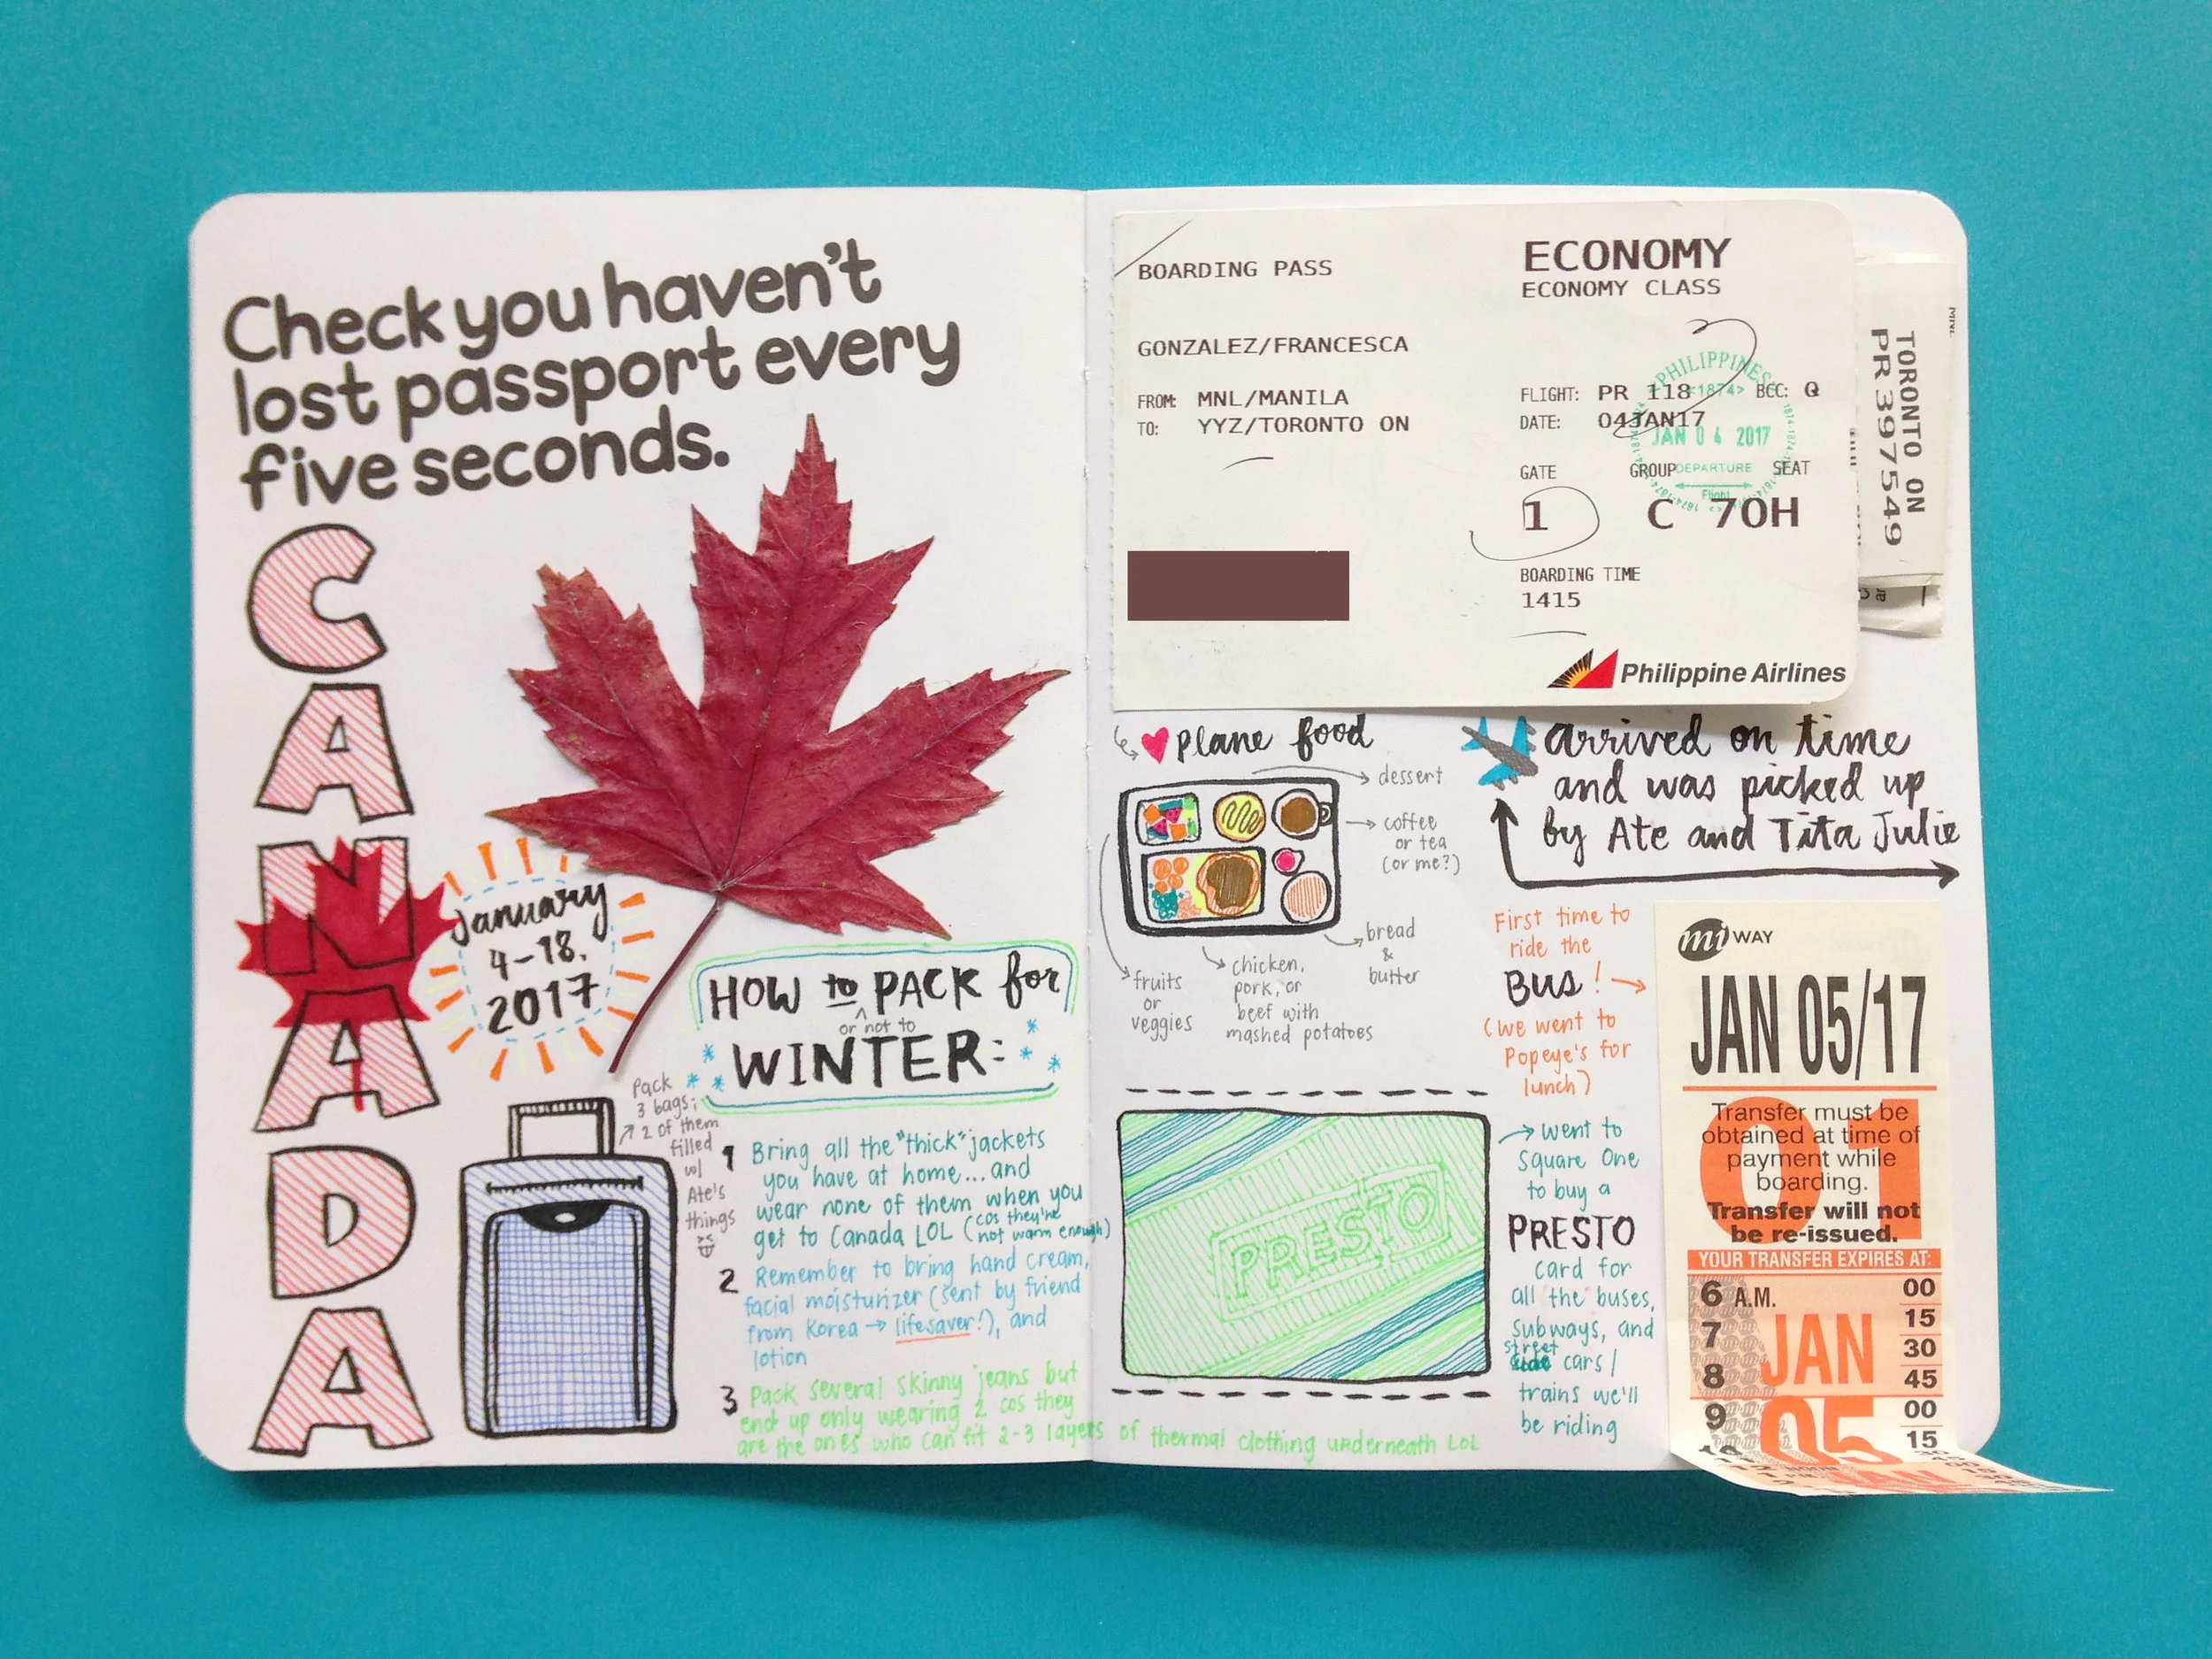 Check you haven't
lost passport every
five seconds.
CANADA
January
4-18.
2017
HOW to PACK for
or not to
WINTER:
Pack
3 bags;
2 of them
filled
w/
Ate's
things
1 Bring all the "thick" jackets
you have at home... and
wear none of them when you
get to Canada LOL (cos they're
not warm enough)
2 Remember to bring hand cream,
facial moisturizer (sent by friend
from Korea → lifesaver!), and
lotion
3 Pack several skinny jeans but
end up only wearing 2 cos they
are the ones who can fit 2-3 layers of thermal clothing underneath LOL
BOARDING PASS
ECONOMY
ECONOMY CLASS
GONZALEZ/FRANCESCA
FROM: MNL/MANILA
TO: YYZ/TORONTO ON
FLIGHT: PR 118 BCC: Q
DATE: 04JAN17
GATE GROUP SEAT
1 C 70H
BOARDING TIME
1415
Philippine Airlines
PHILIPPINES
<1874>
JAN 04 2017
DEPARTURE
Flight
TORONTO ON
PR 397549
plane food
dessert
coffee
or tea
(or me?)
bread
&
butter
chicken,
pork, or
beef with
mashed potatoes
fruits
or
veggies
arrived on time
and was picked up
by Ate and Tita Julie
First time to
ride the
BUS! →
(we went to
Popeye's for
lunch)
PRESTO
→ went to
Square One
to buy a
PRESTO
card for
all the buses,
subways, and
street cars/
trains we'll
be riding
mi WAY
JAN 05/17
01
Transfer must be
obtained at time of
payment while
boarding.
Transfer will not
be re-issued.
YOUR TRANSFER EXPIRES AT:
6 A.M. 00
7 15
JAN 30
8 45
9 00
05 15